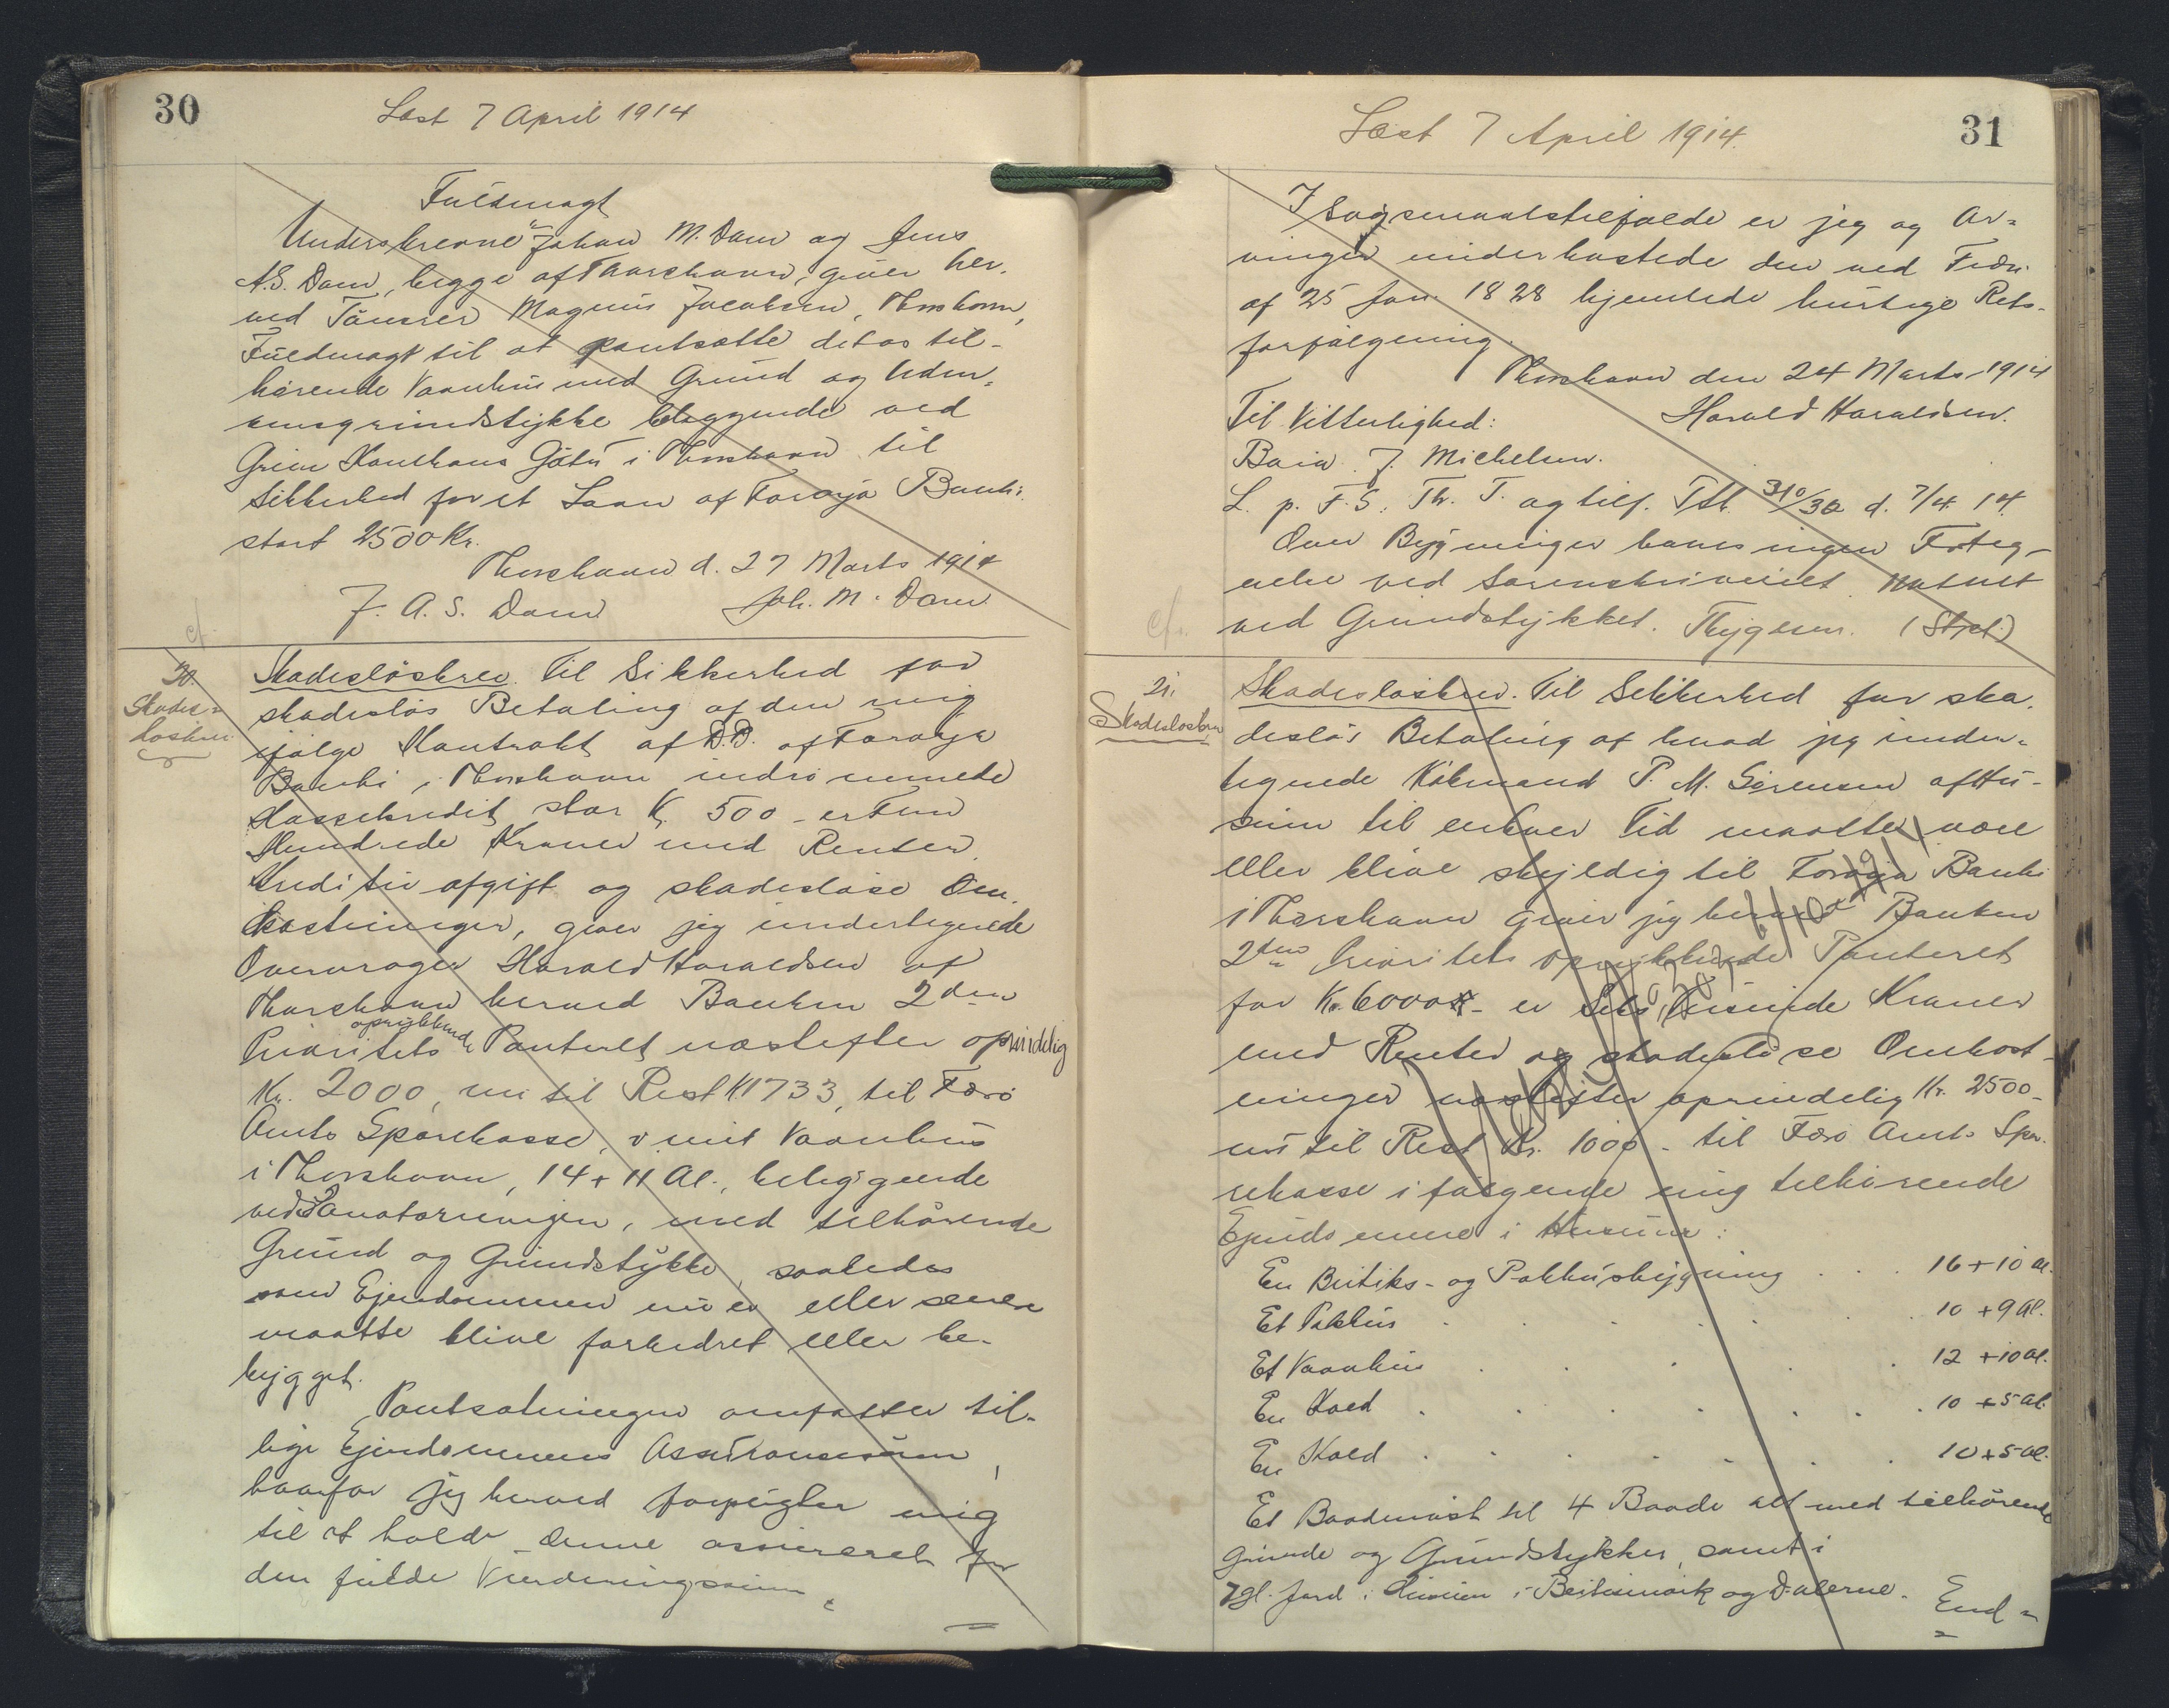 30
Læst 7 April 1914
Fuldmagt
Underskrevne Johan M. Dam og Jens
A. S. Dam, begge af Thorshavn, giver her-
ved Tömrer Magnus Jacobsen, Thorshavn,
Fuldmagt til at pantsætte det os til-
hörende Vaanhus med Grund og Uden-
omsgrundstykke beliggende ved
Grim Kambans Götu i Thorshavn til
Sikkerhed for et Laan af Foroya Banki
stort 2500 Kr.
Thorshavn d. 27 Marts 1914
J. A. S. Dam Joh. M. Dam
cf.
20.
Skades-
lösbrev
Skadeslösbrev. Til Sikkerhed for
skadeslös Betaling af den mig
ifölge Kontrakt af D.D. af Foroya
Banki i Thorshavn indrömmede
Kassekredit stor Kr. 500 - er Fem
Hundrede Kroner med Renter,
Kreditivafgift og skadeslöse Om-
kostninger, giver jeg undertegnede
Overvrager Harald Haraldsen af
Thorshavn herved Banken 2den
oprykkende
Prioritets Panteret næstefter oprindelig
Kr. 2000, nu til Rest K 1733, til Færö
Amts Sparekasse, i mit Vaanhus
i Thorshavn, 14 + 11 Al., beliggende
ved Sanatorievejen, med tilhörende
Grund og Grundstykke, saaledes
som Ejendommen nu er eller senere
maatte blive forbedret eller be-
bygget.
Pantsætningen omfatter til-
lige Ejendommens Assurancesum,
hvorfor jeg herved forpligter mig
til at holde denne assureret for
den fulde Vurderingssum.
31
Læst 7 April 1914.
I Sögsmaalstilfælde er jeg og Ar-
vinger underkastede den ved Frdn.
af 25 Jan. 1828 hjemlede hurtige Rets-
forfölgning.
Thorshavn den 24 Marts 1914
Til Vitterlighed: Harald Haraldsen.
J. Michelsen.
L. p. F. S. Th. T. og tilf. Tstb. 310/30 d. 7/4 14.
Over Bygninger haves ingen Forteg-
nelse ved Sorenskriveriet. Noteret
ved Grundstykket. Thygesen. (Stpl.)
cfr.
21.
Skadeslösbrev
Skadeslösbrev. Til Sikkerhed for ska-
deslös Betaling af hvad jeg under-
tegnede Köbmand P. M. Sörensen af Hu-
sum til enhver Tid maatte være
eller blive skyldig til Foroya Banki
i Thorshavn giver jeg herved Banken
2den Prioritets oprykkende Panteret
for Kr. 6000 - er Seks Tusinde Kroner
med Renter og skadeslöse Omkost-
ninger næstefter oprindelig Kr. 2500 -
nu til Rest Kr. 1000 - til Færö Amts Spa-
rekasse i fölgende mig tilhörende
Ejendomme i Husum:
En Butiks- og Pakhusbygning . . . 16 + 10 Al.
Et Pakhus . . . . . . 10 + 9 Al.
Et Vaanhus . . . . . 12 + 10 Al.
En Koed . . . . . . . 10 + 5 Al.
En Koed . . . . . . . 10 + 5 Al.
Et Baadenöst til 4 Baade alt med tilhörende
Grunde og Grundstykker, samt i
7 gl. Jord i Husum i Beitismörk og Dalerne. End-